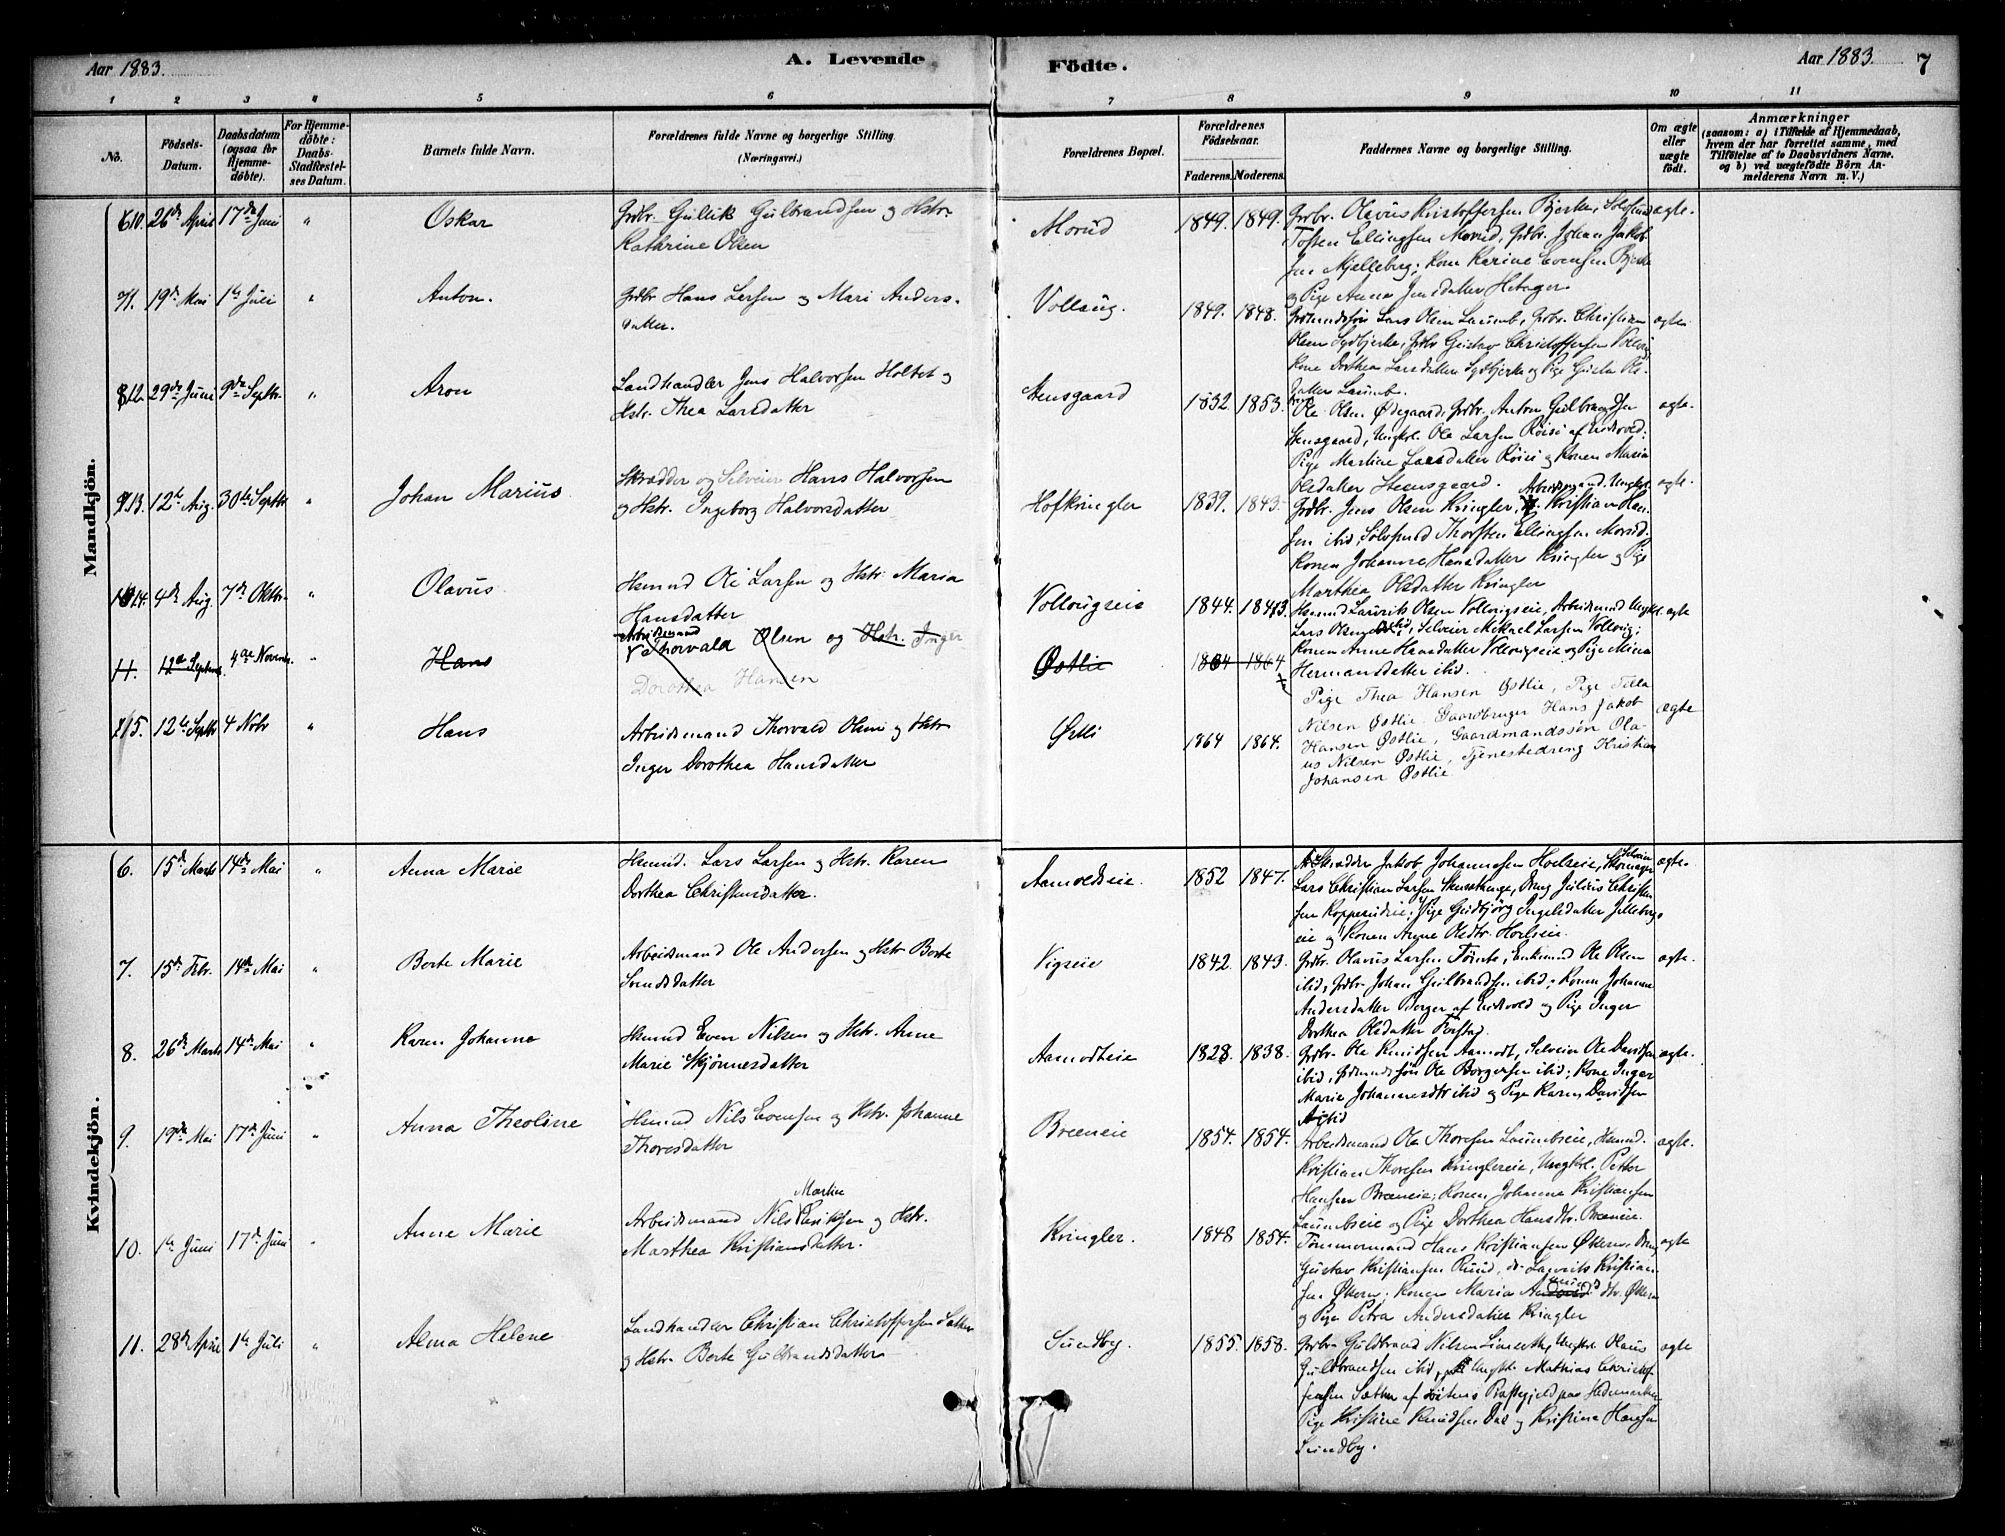 Aar 1883.
A. Levende
Födte.
Aar 1883.
7
1 2 3 4 5 6 7 8 9 10 11
No.
Födsels-Datum.
Daabsdatum (ogsaa for Hjemmedöbte).
For Hjemmedöbte: Daabs-Stadfæstelses Datum.
Barnets fulde Navn.
Forældrenes fulde Navne og borgerlige Stilling.
(Næringsvei.)
Forældrenes Bopæl.
Forældrenes Födselsaar.
Faderens. Moderens.
Faddernes Navne og borgerlige Stilling.
Om ægte eller uægte födt.
Anmærkninger
(saasom: a) i Tilfælde af Hjemmedaab, hvem der har forrettet samme, med Tilföielse af to Daabsvidners Navne, og b) ved uægtefödte Börn Anmelderens Navn m. V.)
Mandkjön.
10. 26de April 17de Juni " Oskar
Grdbr. Gullik Gulbrandsen og Hstr.
Kathrine Olsen
Morud 1849. 1849.
Grdbr. Olavus Kristoffersen Bjerke,
Tosten Ellingsen Morud, Grdbr. Johan Jakob-
sen Mjelleberg; Kone Karine Evensen Bjerke
og Pige Anna Jensdatter Hetager.
ægte.
11. 19de Mai 1ste Juli " Anton.
Grdbr Hans Larsen og Mari Anders-
datter.
Vollaug. 1849. 1848.
Lars Olsen Laumb, Grdbr. Christian
Olsen Sydbjerke, Grdbr Gustav Christoffersen
Kone Dorthea Larsdatter Sydbjerke og Pige
datter Laumb.
ægte.
12. 29de Juni 9de Septbr. " Aron
Landhandler Jens Halvorsen Holtet og
Hstr. Thea Larsdatter
Stensgaard 1832 1853.
Ole Olsen Ødegaard, Grdbr. Anton Gulbrandsen
Stensgaard, Ungkrl. Ole Larsen Röise af Eidsvold;
Pige Martine Larsdatter Röise og Konen Maria
Olsdatter Stensgaard.
ægte.
13. 12te Aug. 30te Septbr " Johan Marius.
Skrædder og Selveier Hans Halvorsen
og Hstr. Ingeborg Halvorsdatter
Hofkringler 1839. 1843.
Arbeidsmand. Ungkrl.
Grdbr. Jens Olsen Kringler, Kristian Han-
sen ibid, Thorsten Ellingsen Morud.
Konen Johanne Hansdatter Kringler og Pige
Marthea Olsdatter Kringler
ægte.
14. 4de Aug. 7de Oktbr. " Olavus
Hsmnd Ole Larsen og Hstr. Maria
Hansdatter
Vollougseie 1844. 1843.
Hsmnd Laurits Olsen Vollougseie, Arbeidsmnd Ungkrl.
Lars Olsen ibid, Selveier Mikael Larsen Vollaug;
Konen Anne Hansdatter Vollougseie og Pige Mina
Hermansdatter ibid.
ægte
11. 12te Septemb. 4de Novemb. " Hans
Arbeidsmand
Thorvald Olsen og Hstr. Inger
Dorothea Hansen
Østlie 1864 1864
15. 12te Septbr 4 Nobr " Hans
Arbeidsmand Thorvald Olsen og Hstr
Inger Dorothea Hansdatter
Østli 1864 1864.
Pige Thea Hansen Østlie, Pige Tilla
Nilsen Østlie. Gaardbruger Hans Jakob
Hansen Østlie, Gaardmandssøn Ola-
us Nilsen Østlie, Tjenestedreng Kristian
Johansen Østlie
ægte
Kvindekjön.
6. 15de Marts 14de Mai " Anna Marie
Hsmnd. Lars Larsen og Hstr. Karen
Dorthea Christensdatter.
Aamodtseie. 1852 1847.
Skrædder Jakob Johannesen Hoelseie,
Lars Christian Larsen Dreng Julius Christen-
sen Pige Gudbjörg Ingelsdatter
eie og Konen Anne Olsdtr. Hoelseie.
ægte.
7. 15de Febr. 14de Mai " Berte Marie
Arbeidsmand Ole Andersen og Hstr Berte
Svendsdatter
Vigseie 1842 1843.
Grdbr. Olavus Larsen Tömte, Enkemnd Ole Olsen
ibid, Grdbr Johan Gulbrandsen ibid; Konen Johanne
Andersdatter Berger af Eidsvold og Pige Inger
Dorthea Olsdatter
ægte.
8. 26de Marts 14de Mai " Karen Johanne
Hsmnd Even Nilsen og Hstr. Anne
Marie Skjönnesdatter
Aamodteie 1828. 1838.
Grdbr. Ole Knudsen Aamodt, Selveier Ole Davidsen
ibid, Ole Borgersen ibid; Kone Inger
Marie Johannesdtr ibid og Pige Karen Davidsen
ibid
ægte.
9. 19de Mai 17de Juni " Anna Theoline
Hsmnd Nils Evensen og Hstr. Johanne
Thoresdatter
Bræneie 1854. 1854.
Arbeidsmand Ole Thoresen Laumbseie, Hsmnd.
Kristian Thoresen Kringlereie, Ungkrl. Petter
Hansen Bræneie; Konen Johanne Kristiansen
Laumbseie og Pige Dorthea Hansdtr. Bræneie.
ægte.
10. 1ste Juni 17de Juni " Anne Marie
Martin
Arbeidsmand Nils Eriksen og Hstr.
Marthea Kristiansdatter.
Kringler. 1848 1854.
Tömmermand Hans Kristiansen Økern, Dreng
Gustav Kristiansen Ruud, do Laurits Kristian-
sen Økern; Konen Maria dtr. Økern
og Pige Petra Andersdatter Kringler
ægte
11. 28de April 1ste Juli " Alma Helene
Landhandler Christian Christoffersen Sæther
og Hstr. Berte Gulbrandsdatter
Sundby. 1855. 1858.
Grdbr Guldbrand Nilsen Ungkrl. Olaus
Guldbrandsen ibid, Ungkr. Mathias Christof-
fersen Sæther af Præstegjeld paa Hedemarken
Pige Kristine Knudsen Dal og Kristine Hansen
Sundby.
ægte